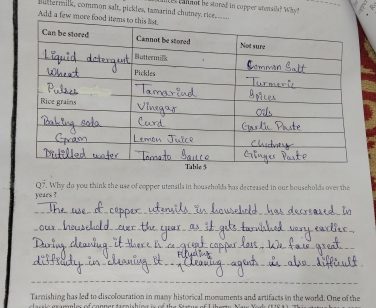 cannot be stored in copper utensils? Why?
Buttermilk, common salt, pickles, tamarind chutney, rice,......
Add a few more food items to this list.
Can be stored Cannot be stored Not sure
Liquid detergent Buttermilk Common Salt
Wheat Pickles Turmeric
Pulses Tamarind Spices
Rice grains Vinegar Oils
Baking soda Curd Garlic Paste
Gram Lemon Juice Chutney
Distilled water Tomato Sauce Ginger Paste
Table 5
Q7. Why do you think the use of copper utensils in households has decreased in our households over the
years ?
The use of copper utensils in household has decreased in
our household over the year as it gets tarnished very earlier.
During cleaning it there is a great copper loss. We face great
difficulty in cleaning it. Cleaning agents is also difficult
Tarnishing has led to discolouration in many historical monuments and artifacts in the world. One of the
classic examples of copper tarnishing is of the Statue of Liberty, New York (USA).